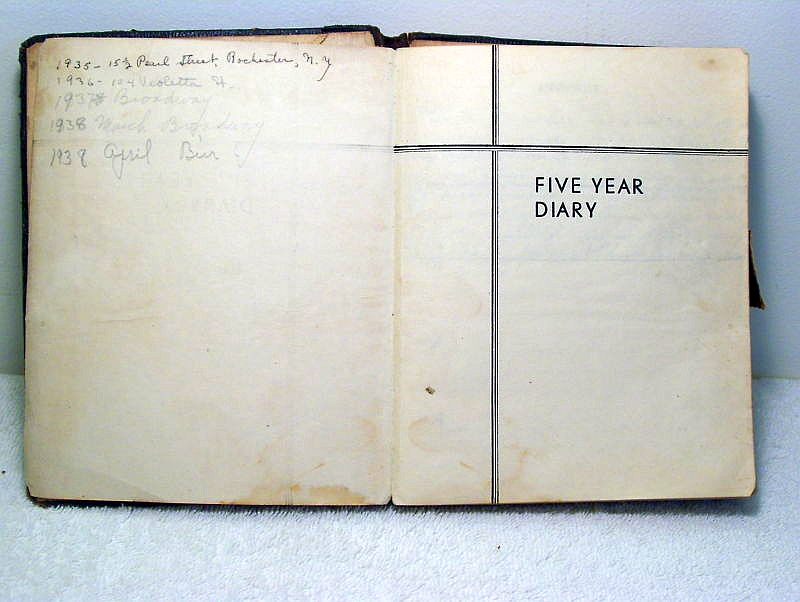 1935 - 15½ Pearl Street, Rochester, N.Y
1936 - 104 Violetta St.
1937 Broadway
1938 March Broadway
1938 April
FIVE YEAR
DIARY